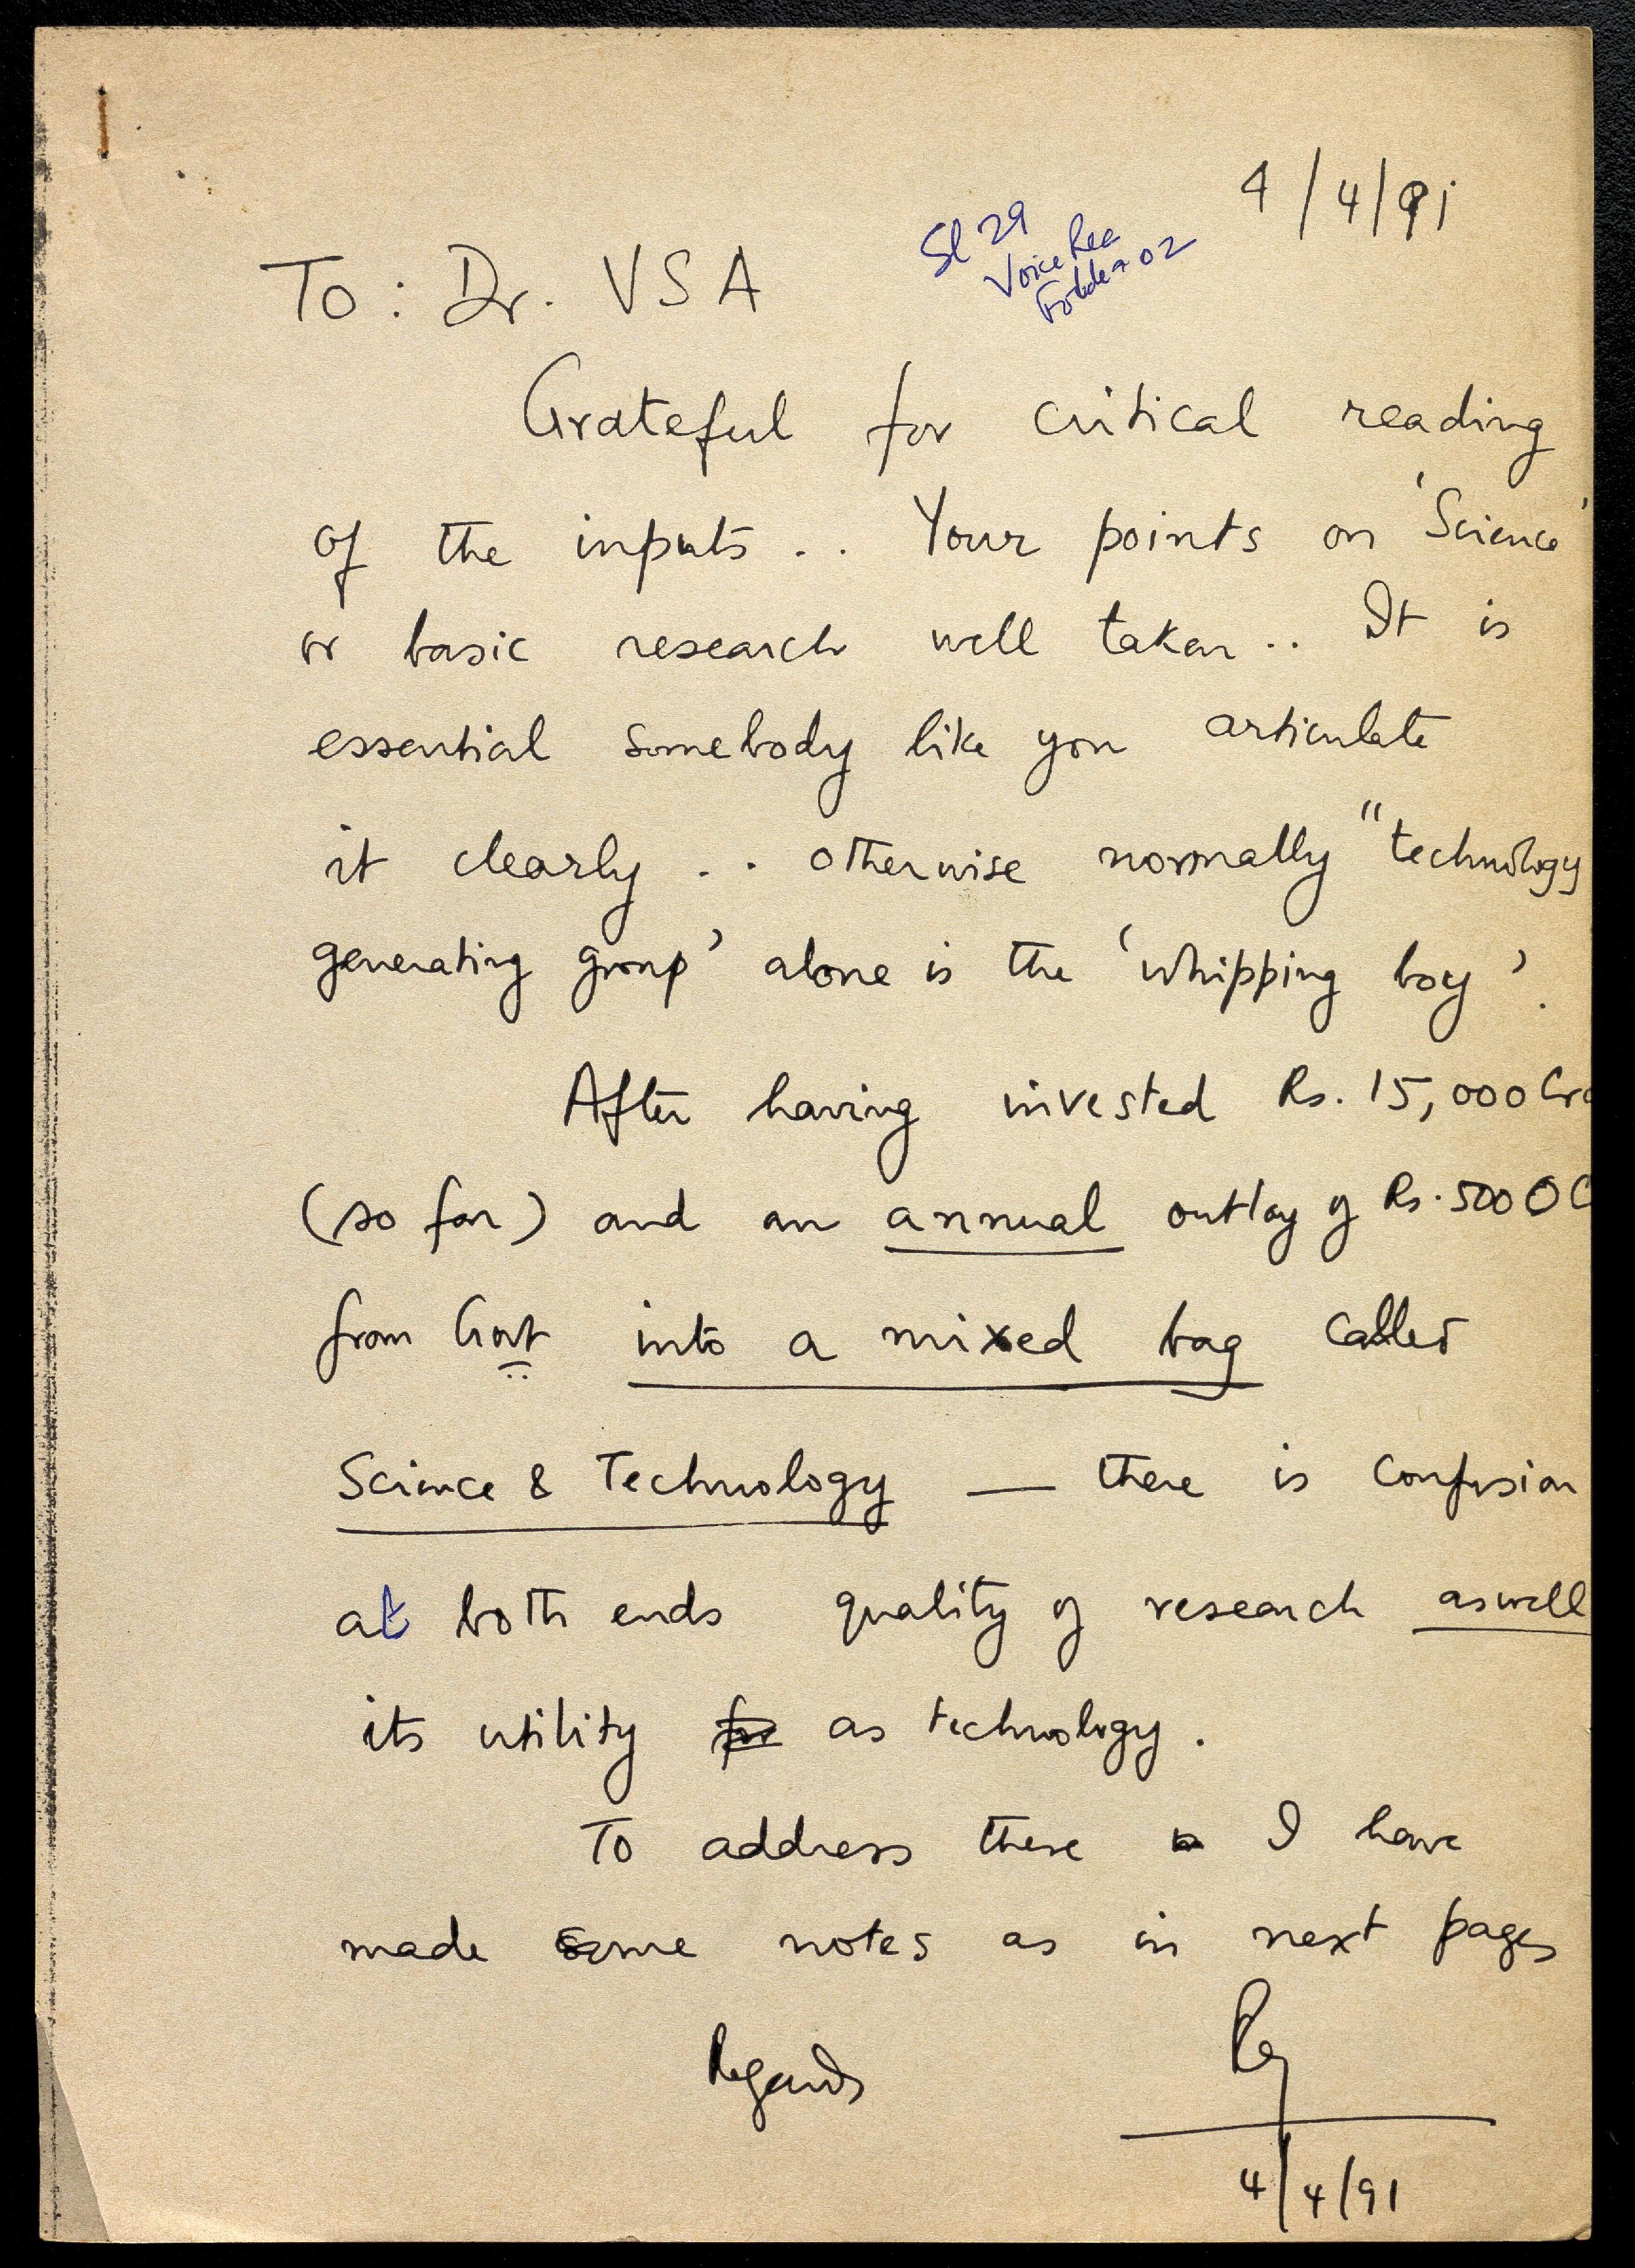 4/4/91
Sl 29
Voice Rec
Folder 02
To: Dr. VSA
Grateful for critical reading
of the inputs .. Your points on 'Science'
or basic research well taken .. It is
essential somebody like you articulate
it clearly .. otherwise normally "technology
generating group' alone is the 'whipping boy'.
After having invested Rs. 15,000 Cro
(so far) and an annual outlay of Rs. 5000 C
from Govt into a mixed bag called
Science & Technology — there is confusion
at both ends quality of research aswell
its utility for as technology.
To address these I have
made some notes as in next pages
Regards
4/4/91